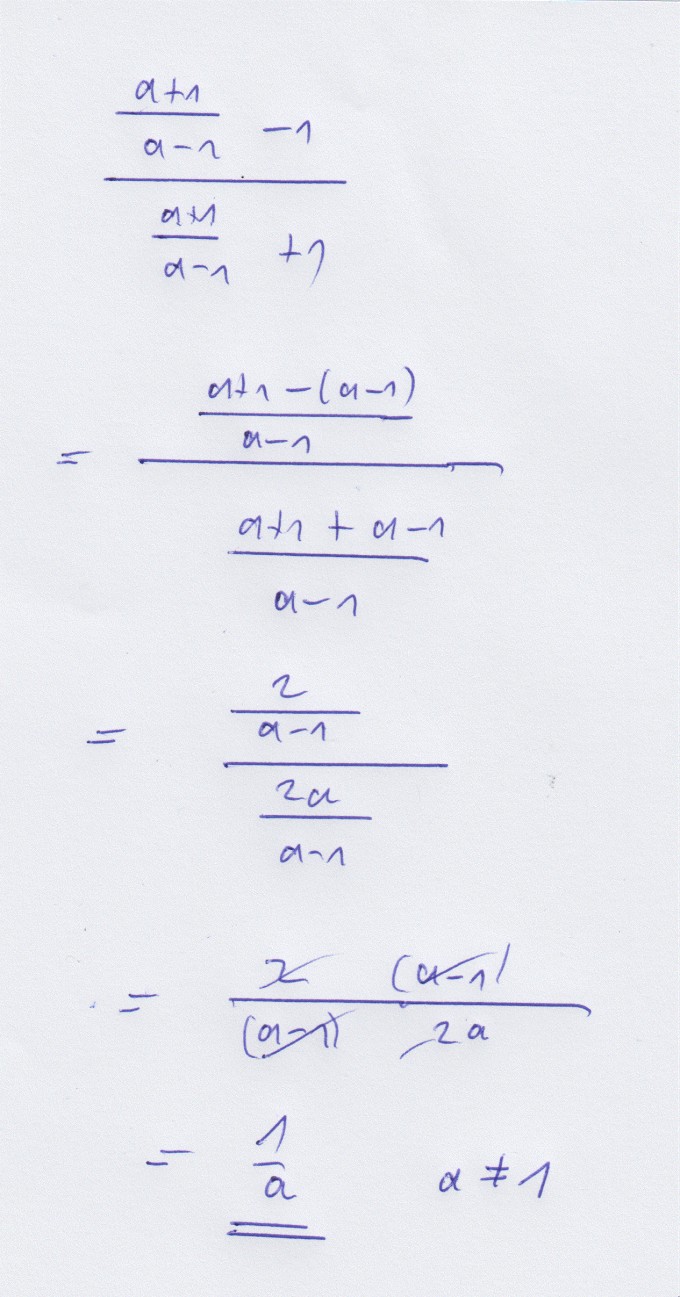 a+1
a-1 -1
a+1
a-1 +1
a+1 -(a-1)
a-1
=
a+1 + a-1
a-1
2
= a-1
2a
a-1
2 (a-1)
= (a-1) 2a
1
= a a ≠ 1